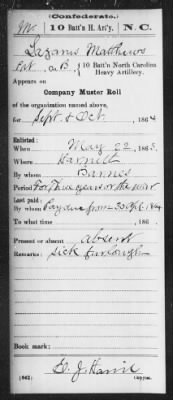 (Confederate.)
M 10 Batt'n H. Art'y. N. C.
Lazarus Matthews
Pvt, Co. B, 10 Batt'n North Carolina Heavy Artillery.
Appears on
Company Muster Roll
of the organization named above,
for Sept & Oct, 1864
Enlisted:
When May 22, 1863.
Where Harnett
By whom Barnes
Period Three years or the war
Last paid:
By whom Pay due from 30 Apl. 1864
To what time , 186 .
Present or absent Absent
Remarks: Sick furlough
Book mark:
(642) Copyist.